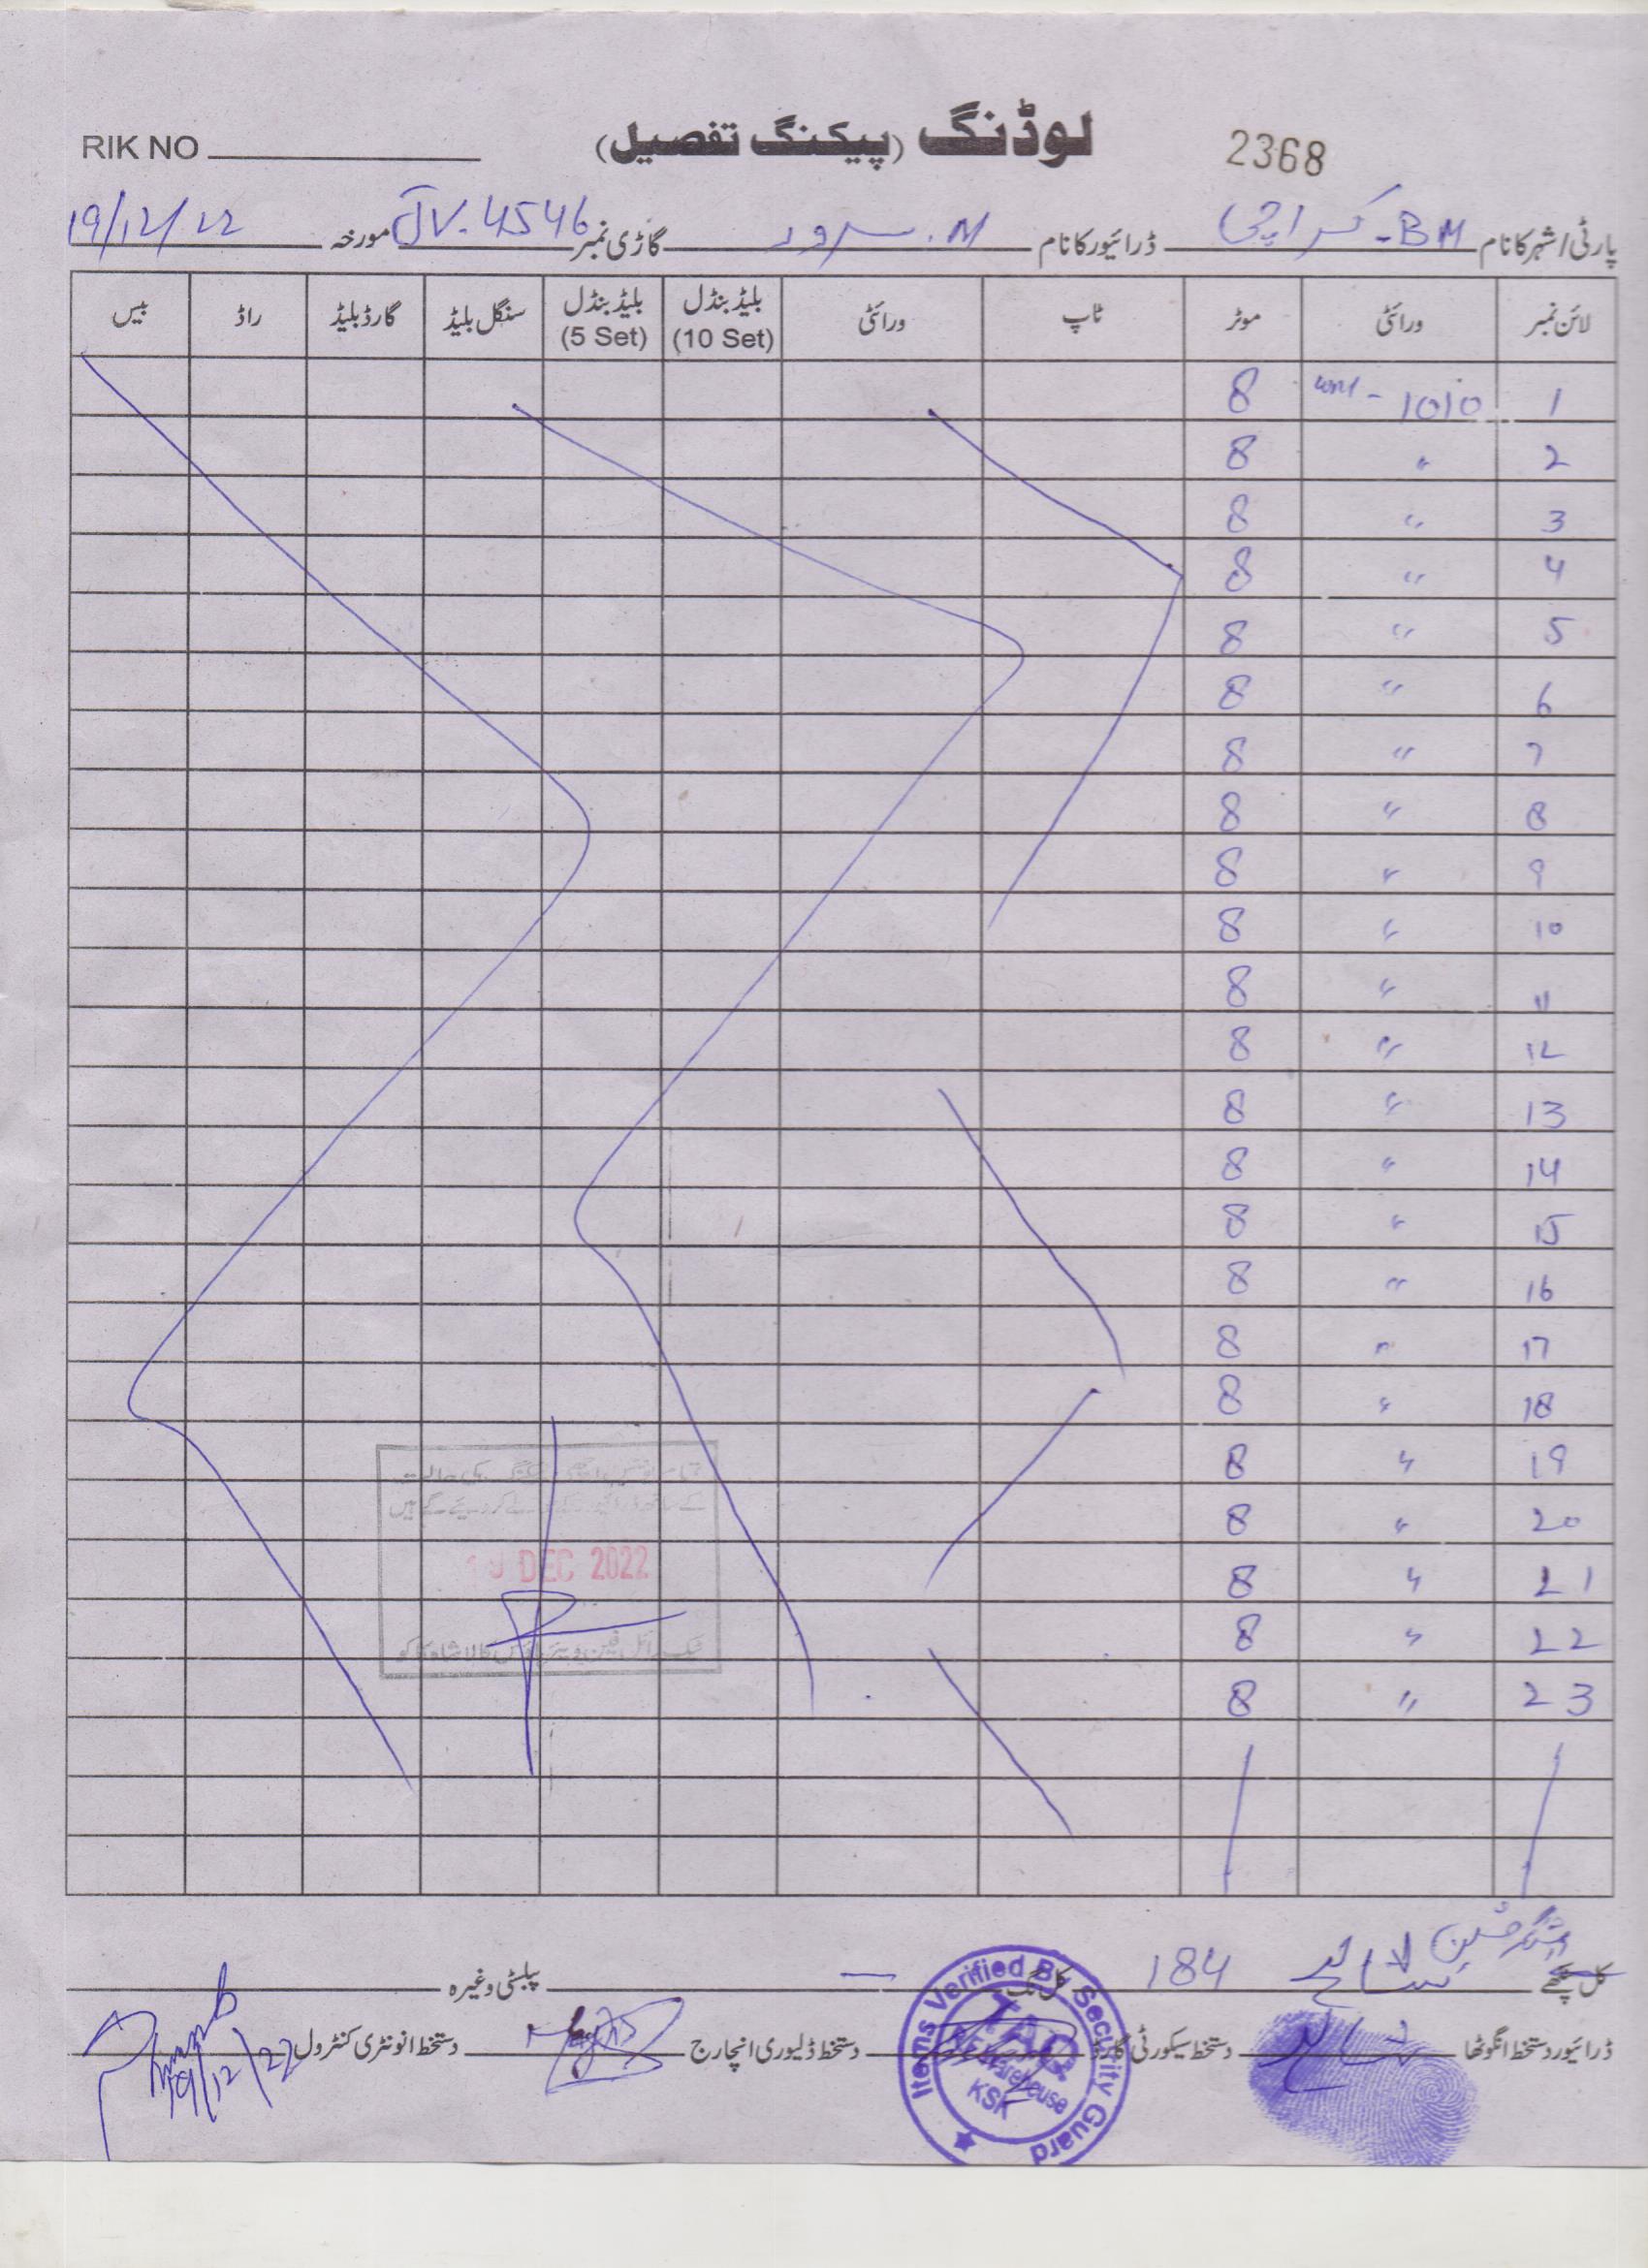 لوڈنگ (پیکنگ تفصیل)
RIK NO
2368
پارٹی/شہر کا نام BM - کراچی ڈرائیور کا نام M. سرور گاڑی نمبر JV-4546 مورخہ 19/12/22
لائن نمبر ورائٹی موٹر ٹاپ ورائٹی بلیڈ بنڈل (10 Set) بلیڈ بنڈل (5 Set) سنگل بلیڈ گارڈ بلیڈ راڈ بیس
1 1010 - 8
2 " 8
3 " 8
4 " 8
5 " 8
6 " 8
7 " 8
8 " 8
9 " 8
10 " 8
11 " 8
12 " 8
13 " 8
14 " 8
15 " 8
16 " 8
17 " 8
18 " 8
19 " 8
20 " 8
21 " 8
22 " 8
23 " 8
19 DEC 2022
کل پنکھے 184 کل نگ — بلٹی وغیرہ
ڈرائیور دستخط انگوٹھا دستخط سیکورٹی گارڈ دستخط ڈلیوری انچارج دستخط انونٹری کنٹرول
19/12/22
Items Verified By Security Guard
Warehouse
KSK